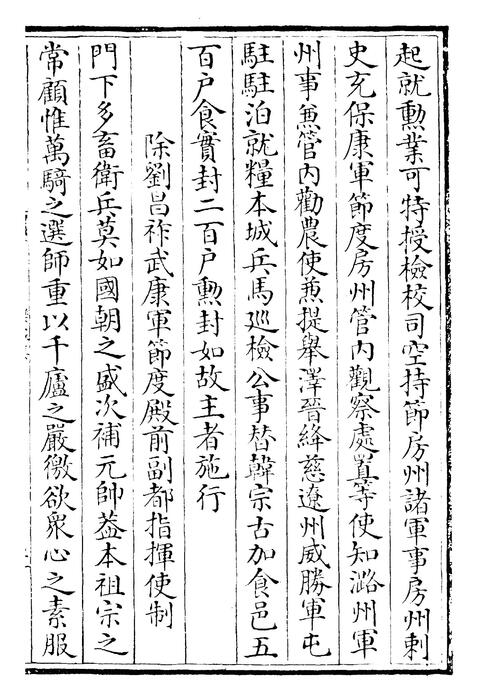 起就勲業可特授檢校司空持節房州諸軍事房州刺
史充保康軍節度房州管内觀察處置等使知潞州軍
州事兼管内勸農使兼提舉澤晉絳慈遼州威勝軍屯
駐駐泊就糧本城兵馬巡檢公事替韓宗古加食邑五
百户食實封二百户勲封如故主者施行
除劉昌祚武康軍節度殿前副都指揮使制
門下多畜衛兵莫如國朝之盛次補元帥葢本祖宗之
常顧惟萬騎之選師重以千廬之嚴徼欲衆心之素服